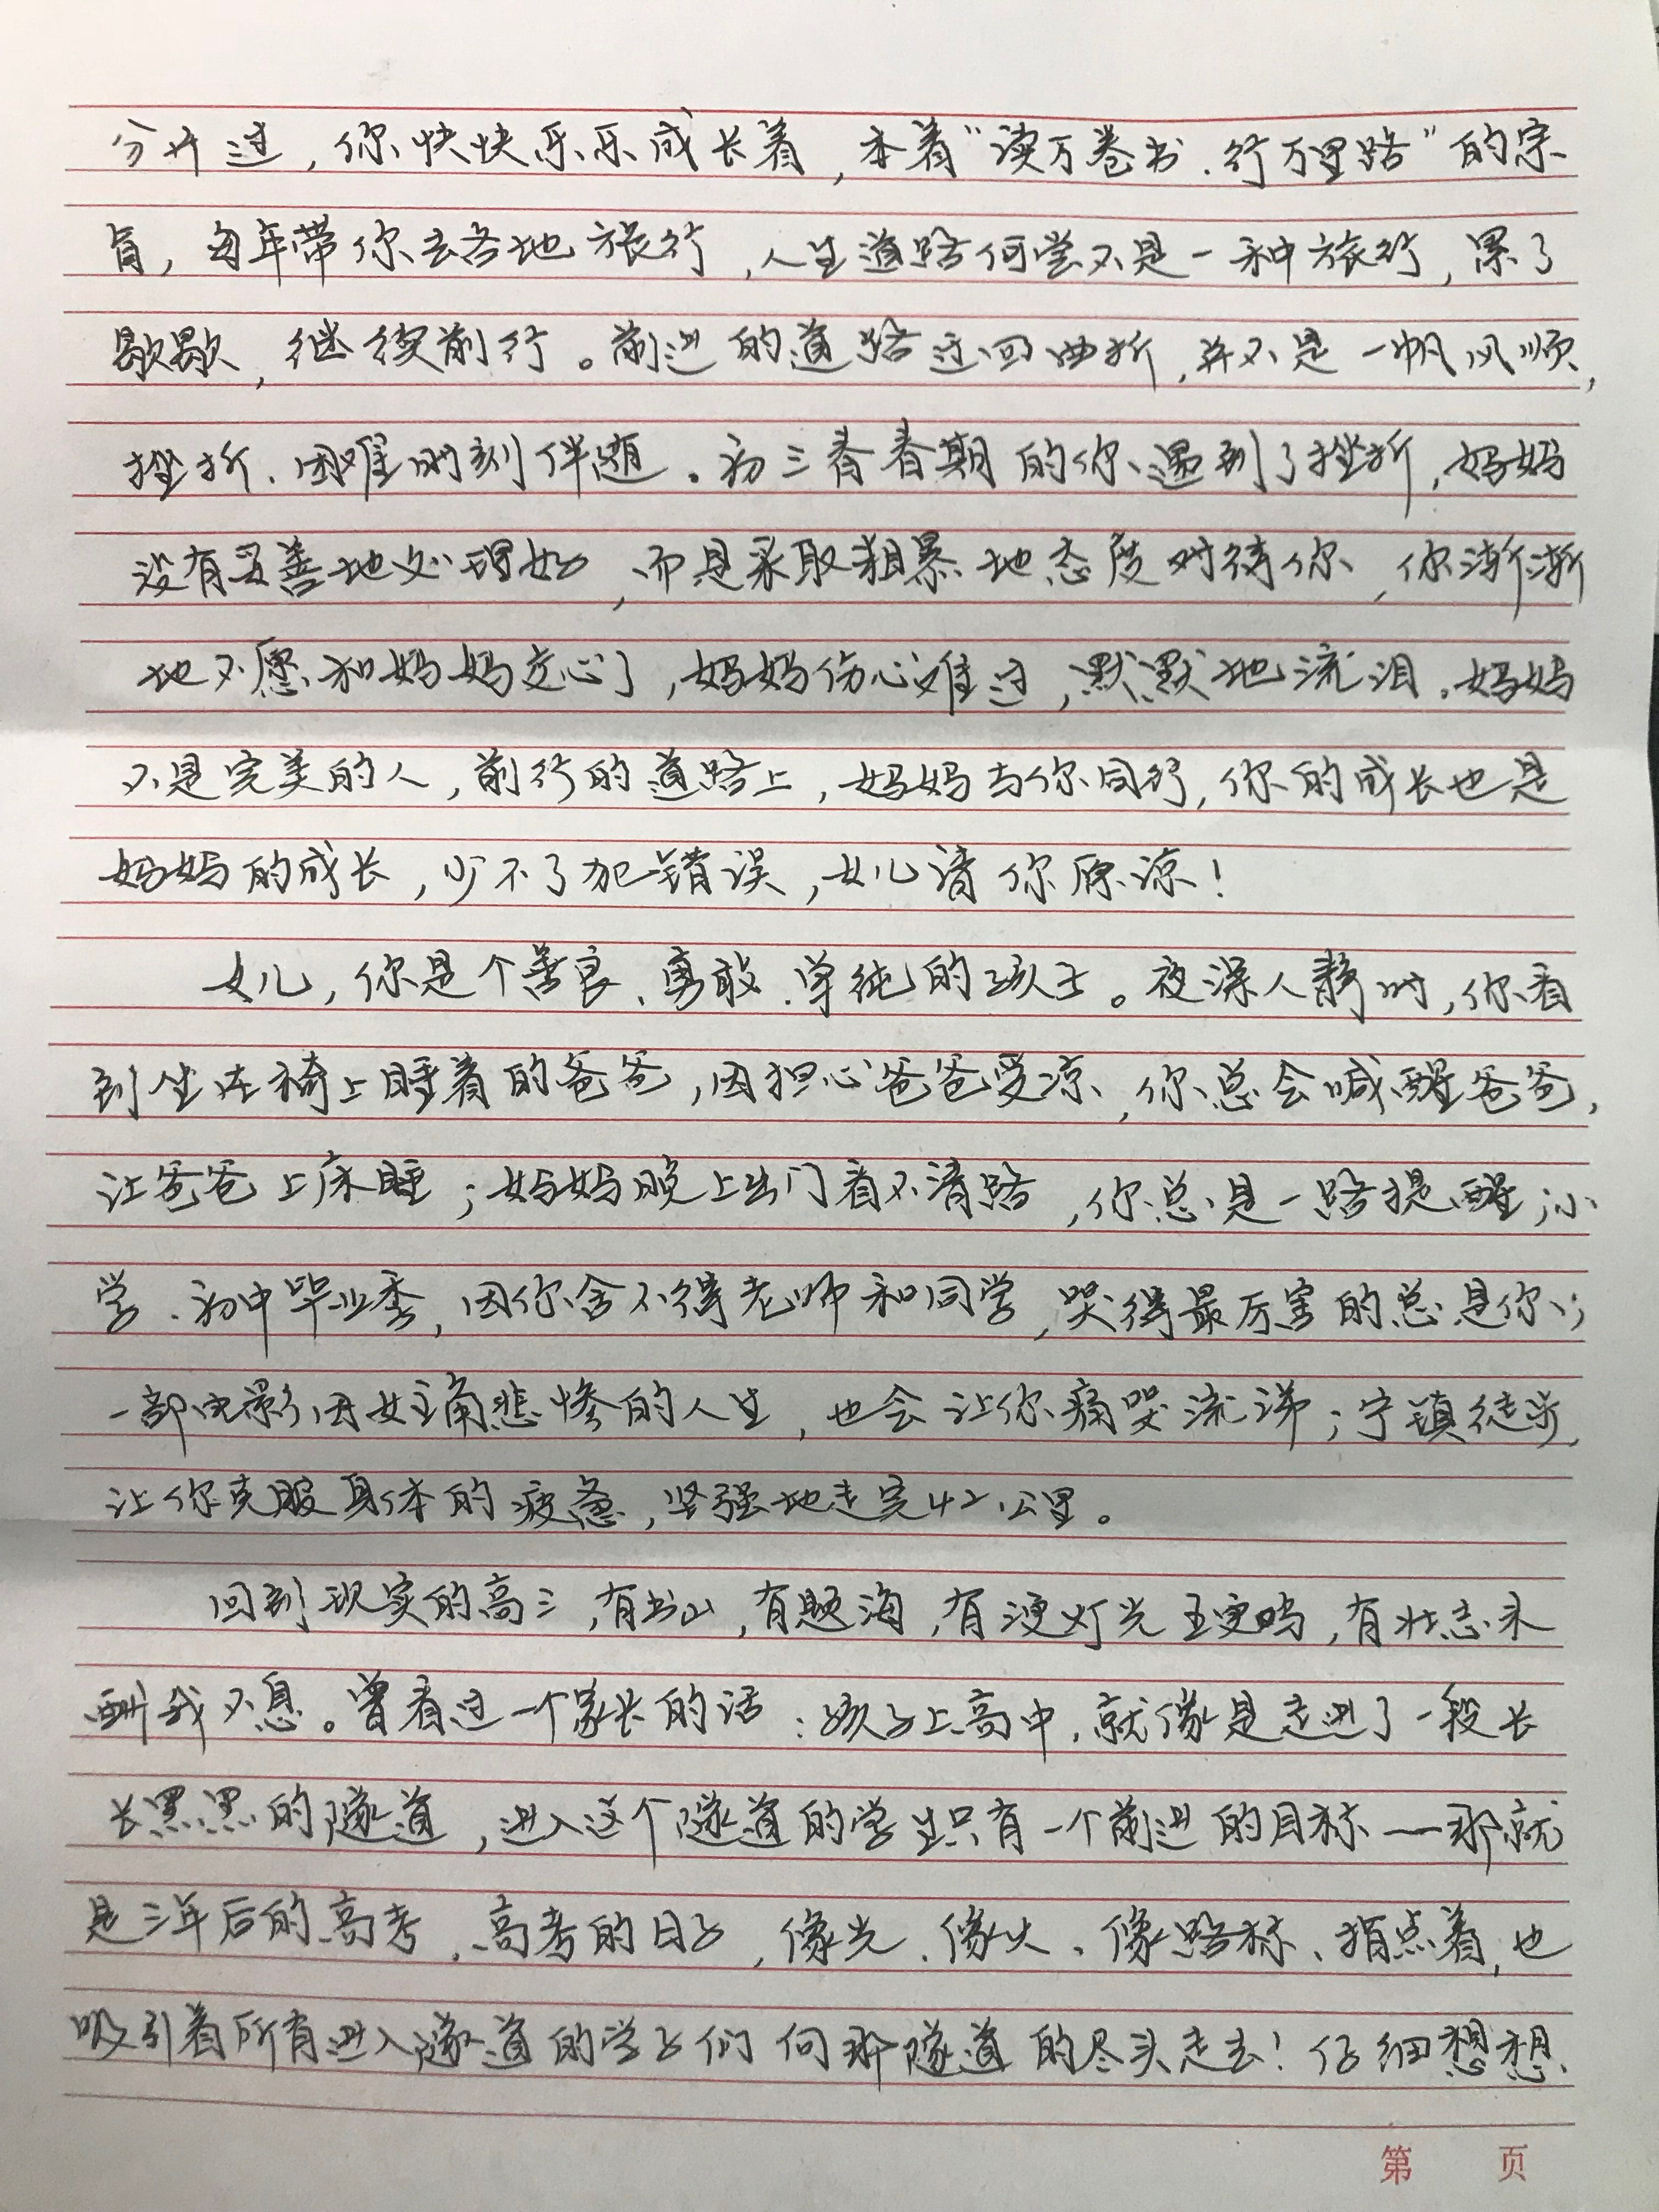 分开过，你快快乐乐成长着，本着“读万卷书、行万里路”的宗
旨，每年带你去各地旅行，人生道路何尝不是一种旅行，累了
歇歇，继续前行。前进的道路迂回曲折，并不是一帆风顺，
挫折、困难时刻伴随。初三青春期的你遇到了挫折，妈妈
没有妥善地处理好，而是采取粗暴地态度对待你，你渐渐
地不愿和妈妈交心了，妈妈伤心难过，默默地流泪。妈妈
不是完美的人，前行的道路上，妈妈与你同行，你的成长也是
妈妈的成长，少不了犯错误，女儿请你原谅！
女儿，你是个善良、勇敢、单纯的孩子。夜深人静时，你看
到坐在椅上睡着的爸爸，因担心爸爸受凉，你总会喊醒爸爸，
让爸爸上床睡；妈妈晚上出门看不清路，你总是一路提醒；小
学、初中毕业季，因你舍不得老师和同学，哭得最厉害的总是你；
一部电影因女主角悲惨的人生，也会让你痛哭流涕；宁镇徒步，
让你克服身体的疲惫，坚强地走完42公里。
回到现实的高三，有书山，有题海，有三更灯光五更鸡，有壮志未
酬我不息。曾看过一个家长的话：孩子上高中，就像是走进了一段长
长黑黑的隧道，进入这个隧道的学生只有一个前进的目标——那就
是三年后的高考，高考的日子，像光、像火、像路标、指点着，也
吸引着所有进入隧道的学子们向那隧道的尽头走去！仔细想想
第 页